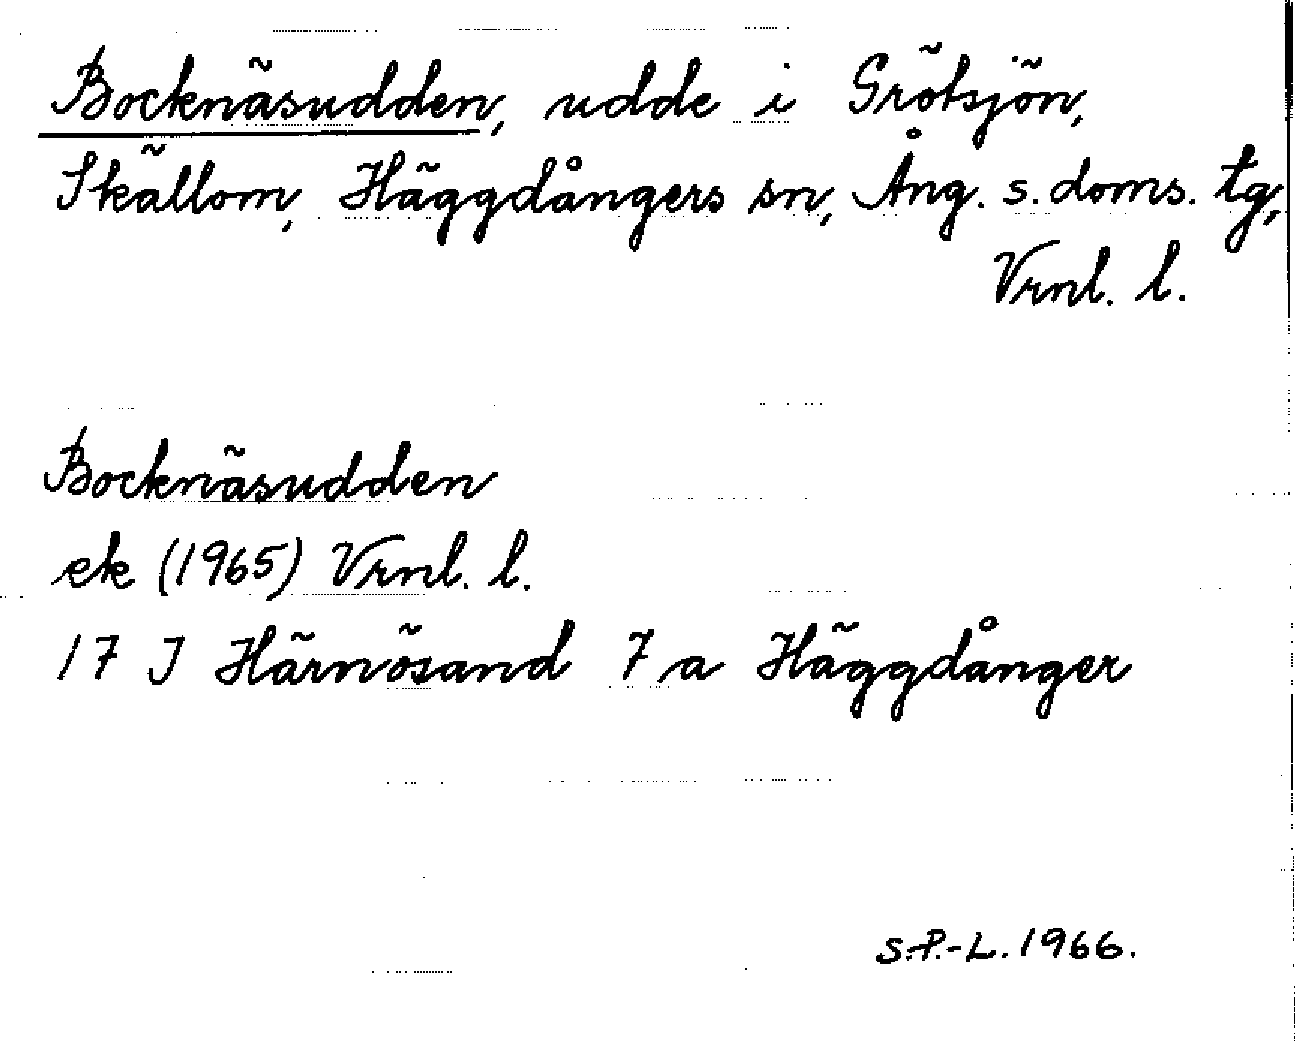 Bocknäsudden, udde i Grötsjön,
Skällom, Häggdångers sn, Ång. s. doms. tg,
Vrnl. l.
Bocknäsudden
ek (1965) Vrnl. l.
17 J Härnösand 7 a Häggdånger
S.P.-L. 1966.